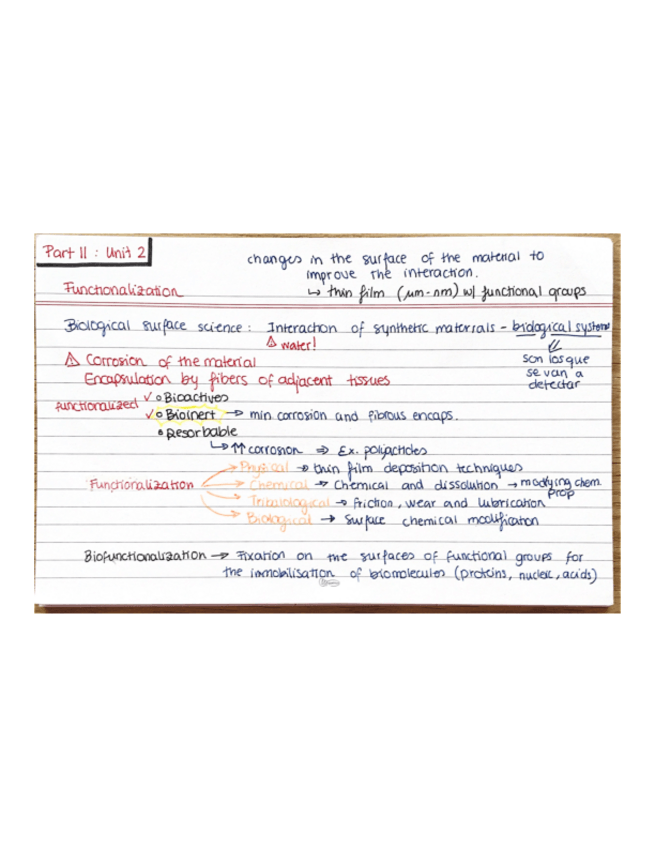 Part II : Unit 2
changes in the surface of the material to
improve the interaction.
Functionalization
↳ thin film (μm-nm) w/ functional groups
Biological surface science: Interaction of synthetic materials - biological systems
⚠ water!
son los que
se van a
detectar
⚠ Corrosion of the material
Encapsulation by fibers of adjacent tissues
functionalized ✓ o Bioactives
✓ o Bioinert → min. corrosion and fibrous encaps.
• Resorbable
↳ ↑↑ corrosion ⇒ Ex. poliactides
Functionalization
Physical → thin film deposition techniques
Chemical → Chemical and dissolution → modifying chem.
prop
Tribological → friction, wear and lubrication
Biological → Surface chemical modification
Biofunctionalization → Fixation on the surfaces of functional groups for
the inmobilisation of biomolecules (proteins, nucleic, acids)